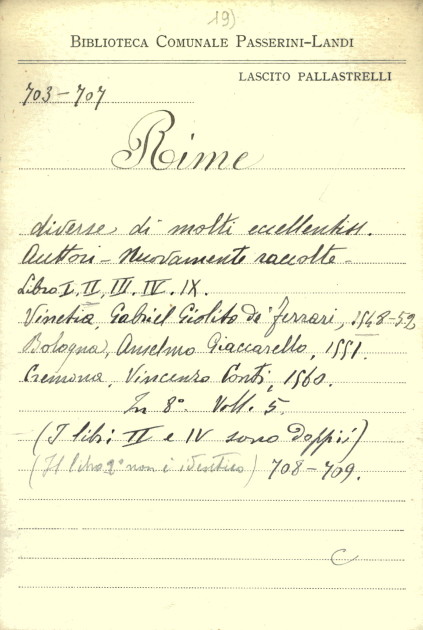 19)
BIBLIOTECA COMUNALE PASSERINI-LANDI
LASCITO PALLASTRELLI
703-707
Rime
diverse di molti eccellentiss.
Auttori - Nuovamente raccolte -
Libro I, II, III, IV, IX.
Vinetia, Gabriel Giolito de' Ferrari, 1548-52
Bologna, Anselmo Giaccarello, 1551.
Cremona, Vincenzo Conti, 1560.
In 8º. Voll. 5.
(I libri II e IV sono doppii)
(Il libro 2º non è identico) 708-709.
C